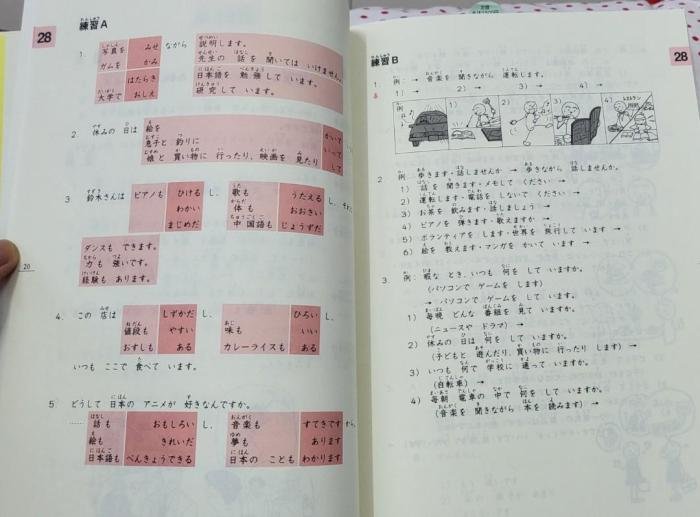 28
練習A
1. 写真を みせ ながら 説明します。
ガムを かみ 先生の 話を 聞いては いけません。
はたらき 日本語を 勉強して います。
大学で おしえ 研究して います。
2 休みの 日は 絵を かいて
息子と 釣りに いって
娘と 買い物に 行ったり、映画を 見たり して
3 鈴木さんは ピアノも ひける し、 歌も うたえる し、
わかい 体も おおきい
まじめだ 中国語も じょうずだ
ダンスも できます。
力も 強いです。
経験も あります。
20
4. この 店は しずかだ し、 ひろい し、
値段も やすい 味も いい
おすしも ある カレーライスも ある
いつも ここで 食べて います。
5 どうして 日本の アニメが 好きなんですか。
…… 話も おもしろい し、 音楽も すてきです から。
絵も きれいだ 夢も あります
日本語も べんきょうできる 日本の ことも わかります
練習B
28
1 例 → 音楽を 聞きながら 運転します。
1) → 2) → 3) → 4) →
例 1) 2) 3) 4) レストラン
2 例 歩きます・話しませんか → 歩きながら 話しませんか。
1) 話を 聞きます・メモして ください →
2) 運転します・電話を しないで ください →
3) お茶を 飲みます・話しましょう →
4) ピアノを 弾きます・歌えますか →
5) ボランティアを します・世界を 旅行して います →
6) 絵を 教えます・マンガを かいて います →
3. 例: 暇な とき、いつも 何を して いますか。
(パソコンで ゲームを します)
→ パソコンで ゲームを して います。
1) 毎晩 どんな 番組を 見て いますか。
(ニュースや ドラマ) →
2) 休みの 日は 何を して いますか。
(子どもと 遊んだり、買い物に 行ったり します) →
3) いつも 何で 学校に 通って いますか。
(自転車) →
4) 毎朝 電車の 中で 何を して いますか。
(音楽を 聞きながら 本を 読みます) →